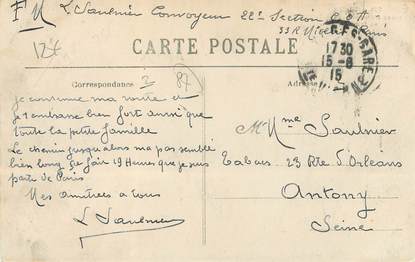 F M L Saulnier Convoyeur 22e Section C O A
33 R
Paris
12f
CARTE POSTALE
GARE
1730
15-8
15
Correspondance
87
Adresse
Je continue ma route et
t'embrasse bien fort ainsi que
toute la petite famille
Le chemin jusqu'alors ma pas semblé
bien long. Je fair 19 Heures que je suis
parti de Paris
Mes amitiées a tous
L Saulnier
Mme Saulnier
Tabacs - 23 Rte d'Orleans
Antony
Seine